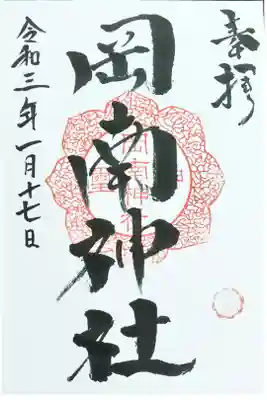 奉拝
岡南神社
令和三年一月十七日